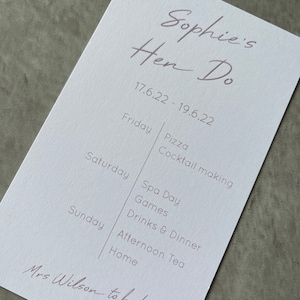 Sophie's
Hen Do
17.6.22 - 19.6.22
Friday
Pizza
Cocktail making
Saturday
Spa Day
Games
Drinks & Dinner
Sunday
Afternoon Tea
Home
Mrs Wilson to